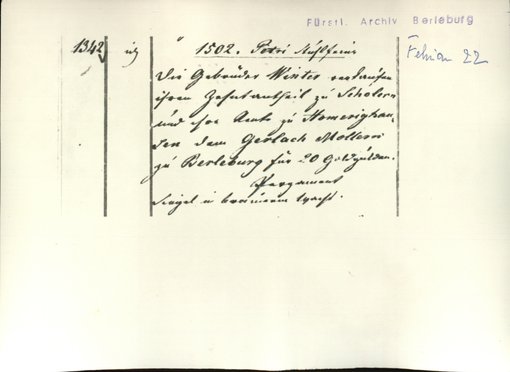 Fürstl. Archiv Berleburg
1342 1502. Petri Stuhlfeier Februar 22
Die Gebrüder Winter verkaufen
ihren Zehntantheil zu
und ihre Rente zu Homerighau-
sen dem Gerlach Mollern
zu Berleburg für 20 Goldgulden.
Pergament
Siegel in braunem Wachs.